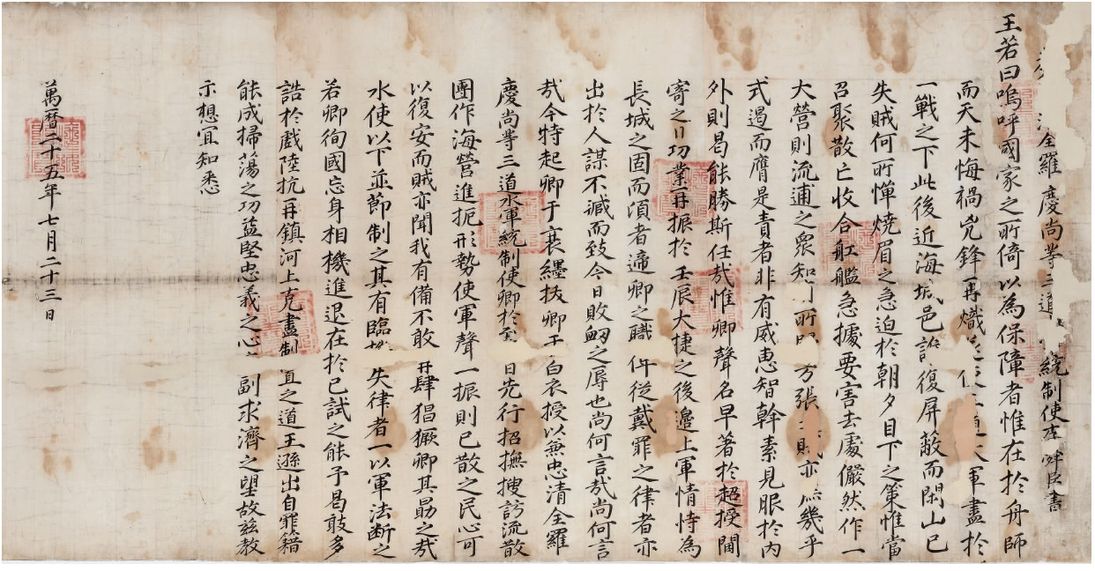 全羅慶尚等三道 統制使李舜臣書
王若曰嗚呼國家之所倚以為保障者惟在於舟師
而天未悔禍兇鋒再熾 軍盡於
一戰之下此後近海城邑誰復屏蔽而閑山已
失賊何所憚燒眉之急迫於朝夕目下之策惟當
召聚散亡收合舡艦急據要害去處儼然作一
大營則流逋之衆知所 方張 賊亦 幾乎
式遏而膺是責者非有威惠智幹素見服於內
外則曷能勝斯任哉惟卿聲名早著於超授閫
寄之日功業再振於壬辰大捷之後邊上軍情恃為
長城之固而頃者遞卿之職俾從戴罪之律者亦
出於人謀不臧而致今日敗衂之辱也尚何言哉尚何言
哉今特起卿于衰絰拔卿于白衣授以兼忠清全羅
慶尚等三道水軍統制使卿於至日先行招撫搜訪流散
團作海營進扼形勢使軍聲一振則已散之民心可
以復安而賊亦聞我有備不敢再肆猖獗卿其勗之哉
水使以下並節制之其有臨 失律者一以軍法斷之
若卿徇國忘身相機進退在於已試之能予曷敢多
誥於戲陸抗再鎮河上克盡制 之道王遜出自罪籍
能成掃蕩之功益堅忠義之心 副求濟之望故玆教
示想宜知悉
萬曆二十五年七月二十三日